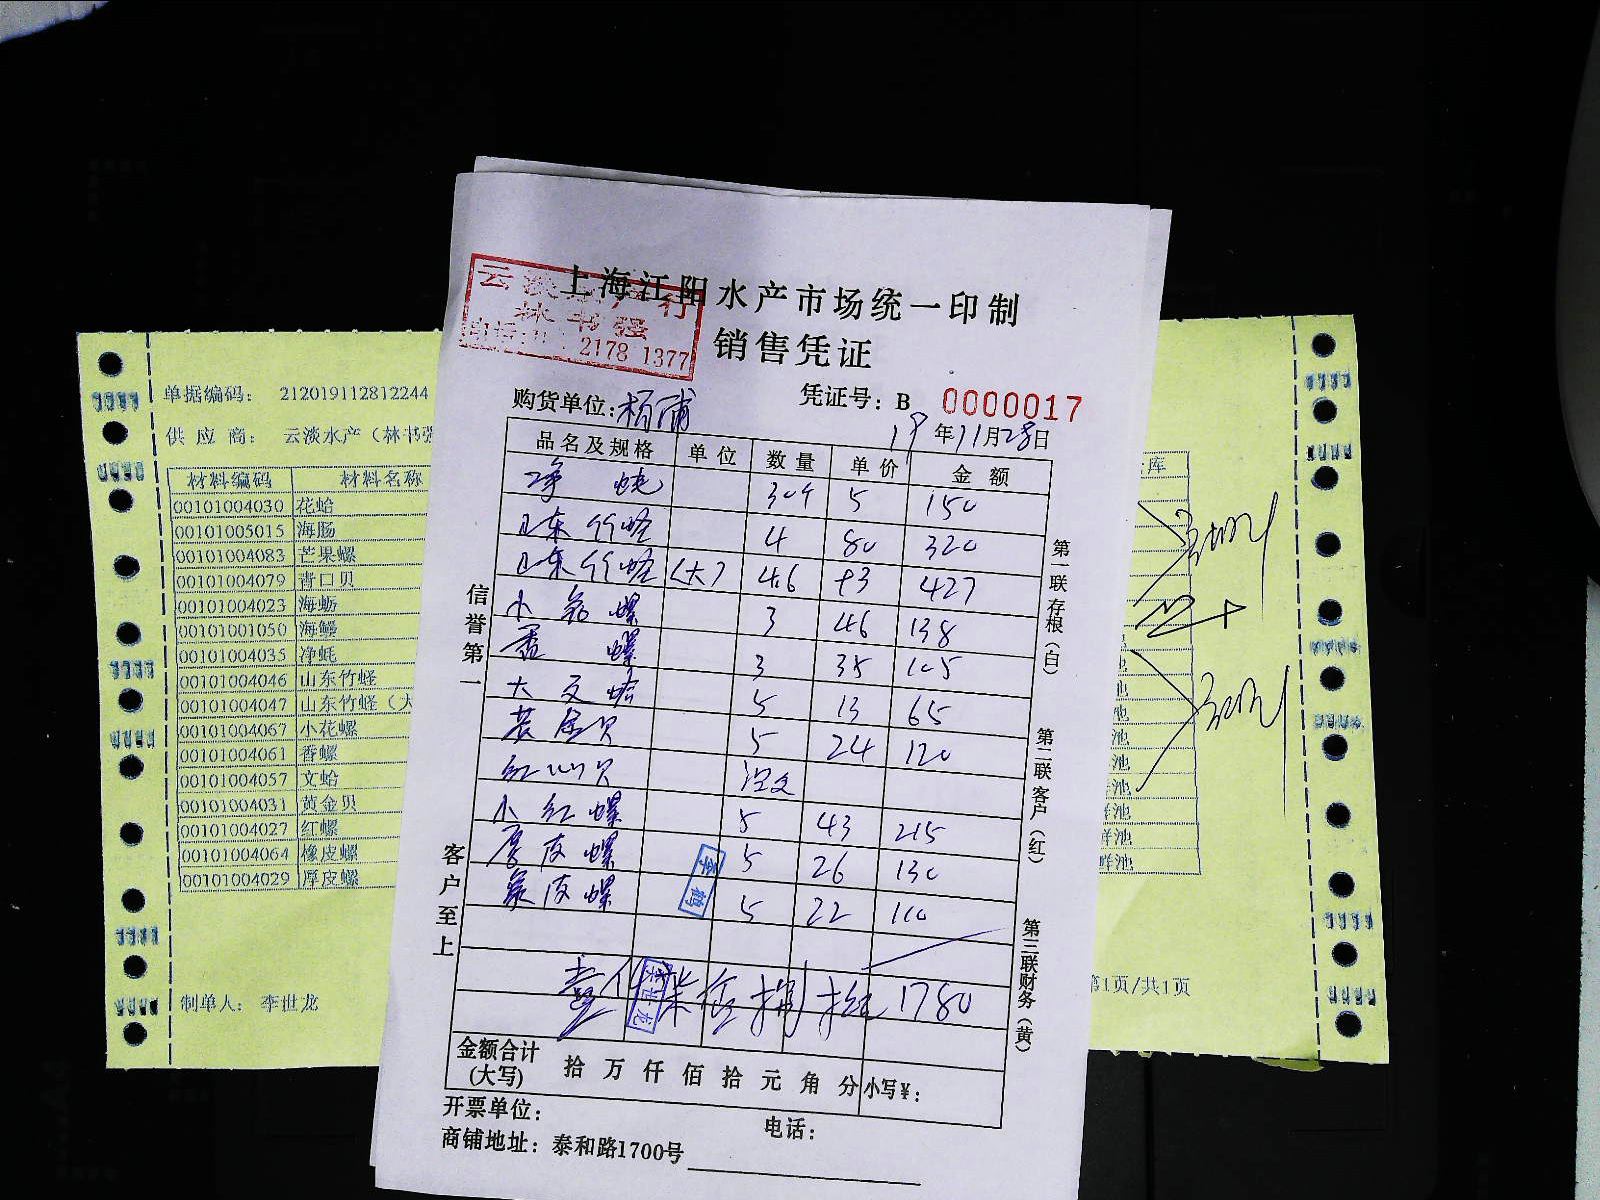 上海江阳水产市场统一印制
销售凭证
林书强
2178 1377
购货单位:
凭证号: B 0000017
19年11月28日
品名及规格 单位 数量 单价 金额
净 5 150
山东竹蛏 4 80 320
山东竹蛏 (大) 4.6 93 427
小花螺 3 46 138
香螺 3 35 105
大文蛤 5 13 65
黄金贝 5 24 120
红 贝 没发
小红螺 5 43 215
厚皮螺 5 26 130
象皮螺 5 22 110
1780
李世龙
金额合计
(大写) 拾 万 仟 佰 拾 元 角 分 小写¥:
开票单位:
电话:
商铺地址: 泰和路1700号
信誉第一
客户至上
第一联存根(白)
第二联客户(红)
第三联财务(黄)
单据编码: 212019112812244
供应商: 云淡水产(林书强
材料编码 材料名称
00101004030 花蛤
00101005015 海肠
00101004083 芒果螺
00101004079 青口贝
00101004023 海蛎
00101001050 海鳗
00101004035 净蚝
00101004046 山东竹蛏
00101004047 山东竹蛏(大
00101004067 小花螺
00101004061 香螺
00101004057 文蛤
00101004031 黄金贝
00101004027 红螺
00101004064 橡皮螺
00101004029 厚皮螺
制单人: 李世龙
库
池
池
池
池
池
池
鲜池
鲜池
鲜池
第1页/共1页